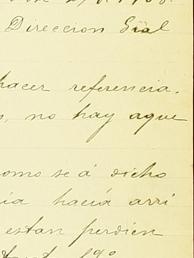 Direccion Gral
hacer referencia.
no hay aque
como se á dicho
ia hacia arri
estan perdien